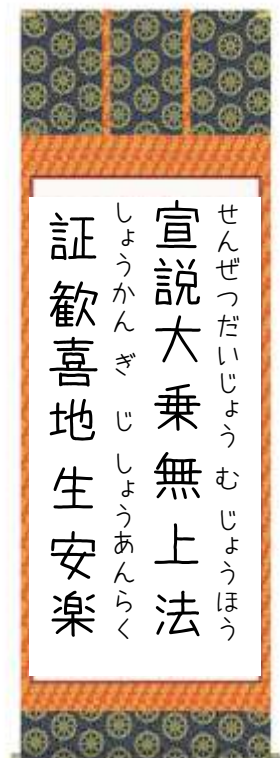 せんぜつだいじょう む じょうほう
宣説大乗無上法
しょうかん ぎ じ しょうあんらく
証歓喜地生安楽